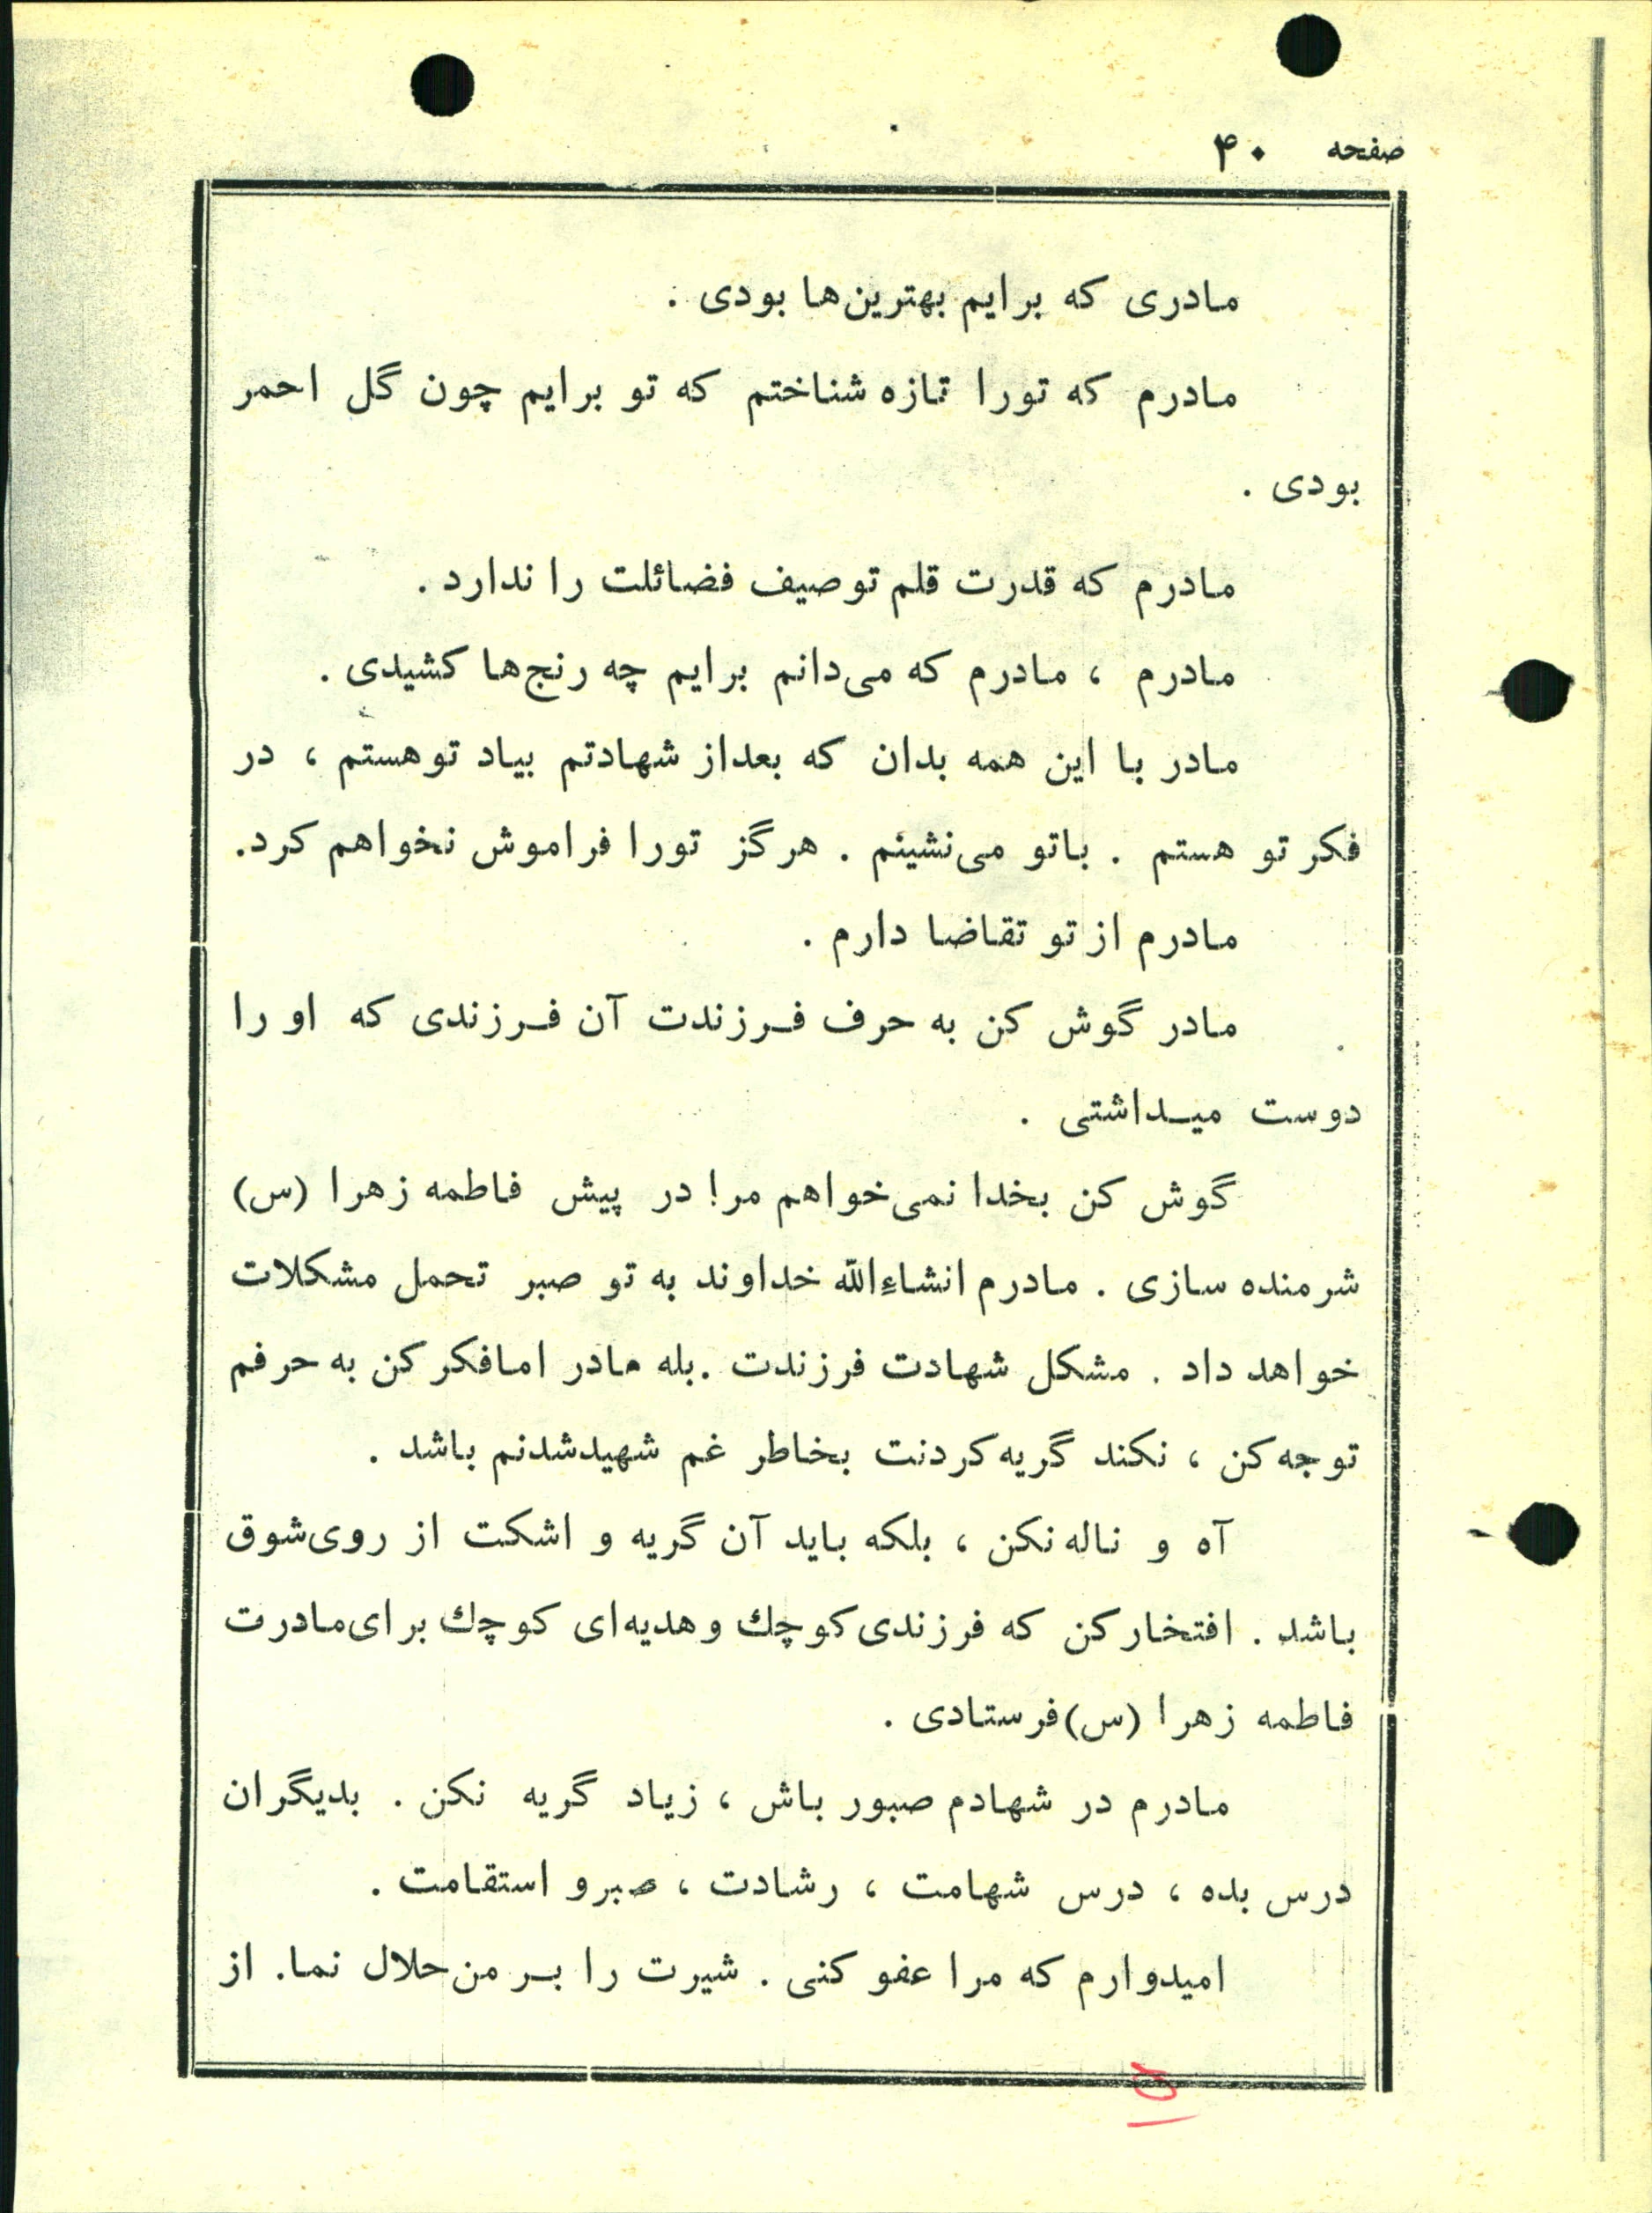 صفحه ۴۰
مادری که برایم بهترین‌ها بودی .
مادرم که تورا تازه شناختم که تو برایم چون گل احمر
بودی .
مادرم که قدرت قلم توصیف فضائلت را ندارد .
مادرم ، مادرم که می‌دانم برایم چه رنج‌ها کشیدی .
مادر با این همه بدان که بعداز شهادتم بیاد توهستم ، در
فکر تو هستم . باتو می‌نشینم . هرگز تورا فراموش نخواهم کرد.
مادرم از تو تقاضا دارم .
مادر گوش کن به حرف فـرزندت آن فـرزندی که او را
دوست میـداشتی .
گوش کن بخدا نمی‌خواهم مرا در پیش فاطمه زهرا (س)
شرمنده سازی . مادرم انشاءالله خداوند به تو صبر تحمل مشکلات
خواهد داد . مشکل شهادت فرزندت .بله مادر امافکر کن به حرفم
توجه کن ، نکند گریه کردنت بخاطر غم شهیدشدنم باشد .
آه و ناله نکن ، بلکه باید آن گریه و اشکت از روی‌شوق
باشد . افتخار کن که فرزندی کوچك و هدیه‌ای کوچك برای‌مادرت
فاطمه زهرا (س) فرستادی .
مادرم در شهادم صبور باش ، زیاد گریه نکن . بدیگران
درس بده ، درس شهامت ، رشادت ، صبر و استقامت .
امیدوارم که مرا عفو کنی . شیرت را بـر من حلال نما. از